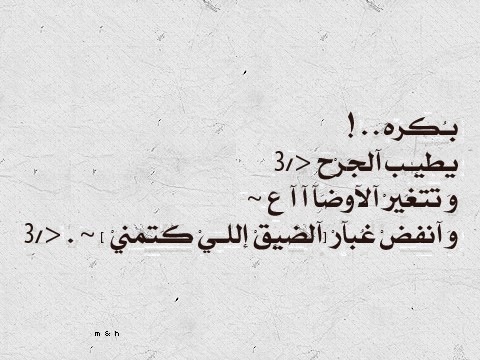 بـكـره..!
يطيـب آلجرْح <⁄3
و تتغيرْ آلآوضآآآع ~
و آنفضْ غبآرْ [آلضيقْ إللـيْ كتمنيْ ] ~ . <⁄3
m & h